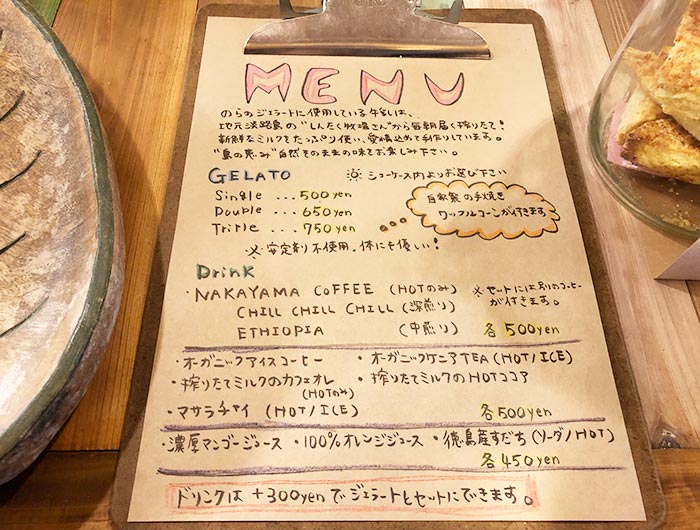 MENU
のらのジェラートに使用している牛乳は、
地元淡路島の"しんたく牧場さん"から毎朝届く搾りたて!
新鮮なミルクをたっぷり使い、愛情込めて手作りしています。
"島の恵み"自然そのままの味をお楽しみ下さい。
GELATO ※ショーケース内よりお選び下さい
Single ... 500yen
Double ... 650yen
Tritle ... 750yen
自家製の手焼き
ワッフルコーンが付きます
※安定剤不使用。体にも優しい!
Drink
・NAKAYAMA COFFEE (HOTのみ)
※セットには別のコーヒー
が付きます。
CHILL CHILL CHILL (深煎り)
ETHIOPIA (中煎り) 各500yen
・オーガニックアイスコーヒー ・オーガニックケニアTEA (HOT/ICE)
・搾りたてミルクのカフェオレ ・搾りたてミルクのHOTココア
(HOTのみ)
・マサラチャイ (HOT/ICE) 各500yen
・濃厚マンゴージュース ・100%オレンジジュース ・徳島産すだち (ソーダ/HOT)
各450yen
ドリンクは+300yenでジェラートとセットにできます。